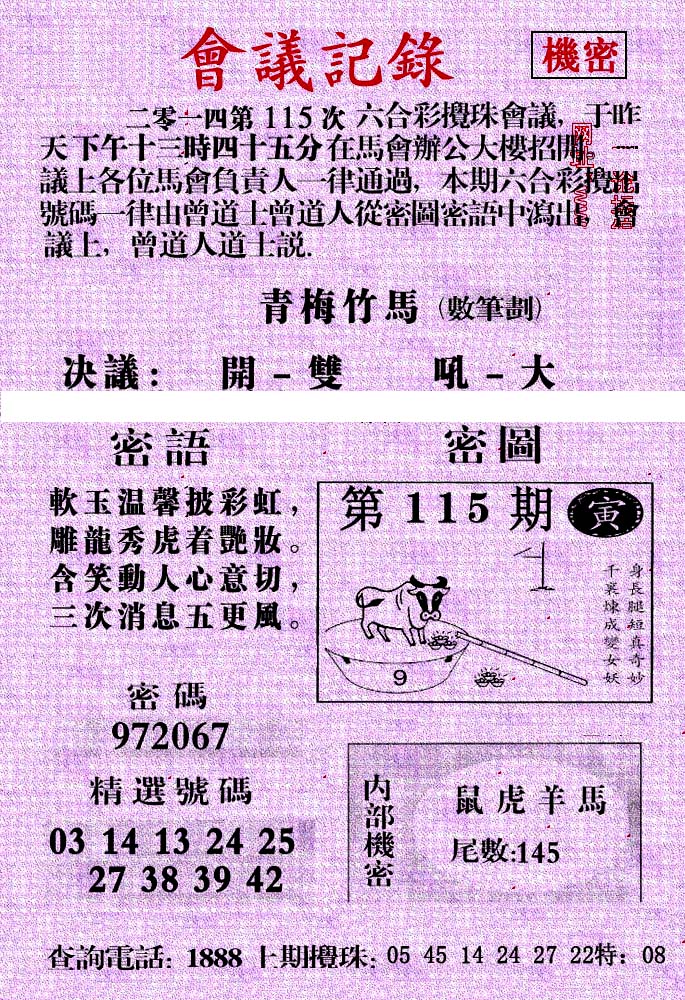 會議記錄
機密
二零一四第115次六合彩攪珠會議，于昨
天下午十三時四十五分在馬會辦公大樓招開
議上各位馬會負責人一律通過，本期六合彩攪出
號碼一律由曾道士曾道人從密圖密語中瀉出，會
議上，曾道人道士説.
青梅竹馬（數筆劃）
决議：開－雙 吼－大
密語
軟玉温馨披彩虹，
雕龍秀虎着艷妝。
含笑動人心意切，
三次消息五更風。
密圖
第115期 寅
身長腿短真奇妙
千裏煉成變女妖
9
密碼
972067
精選號碼
03 14 13 24 25
27 38 39 42
内部機密
鼠虎羊馬
尾數:145
查詢電話：1888 上期攪珠：05 45 14 24 27 22特：08